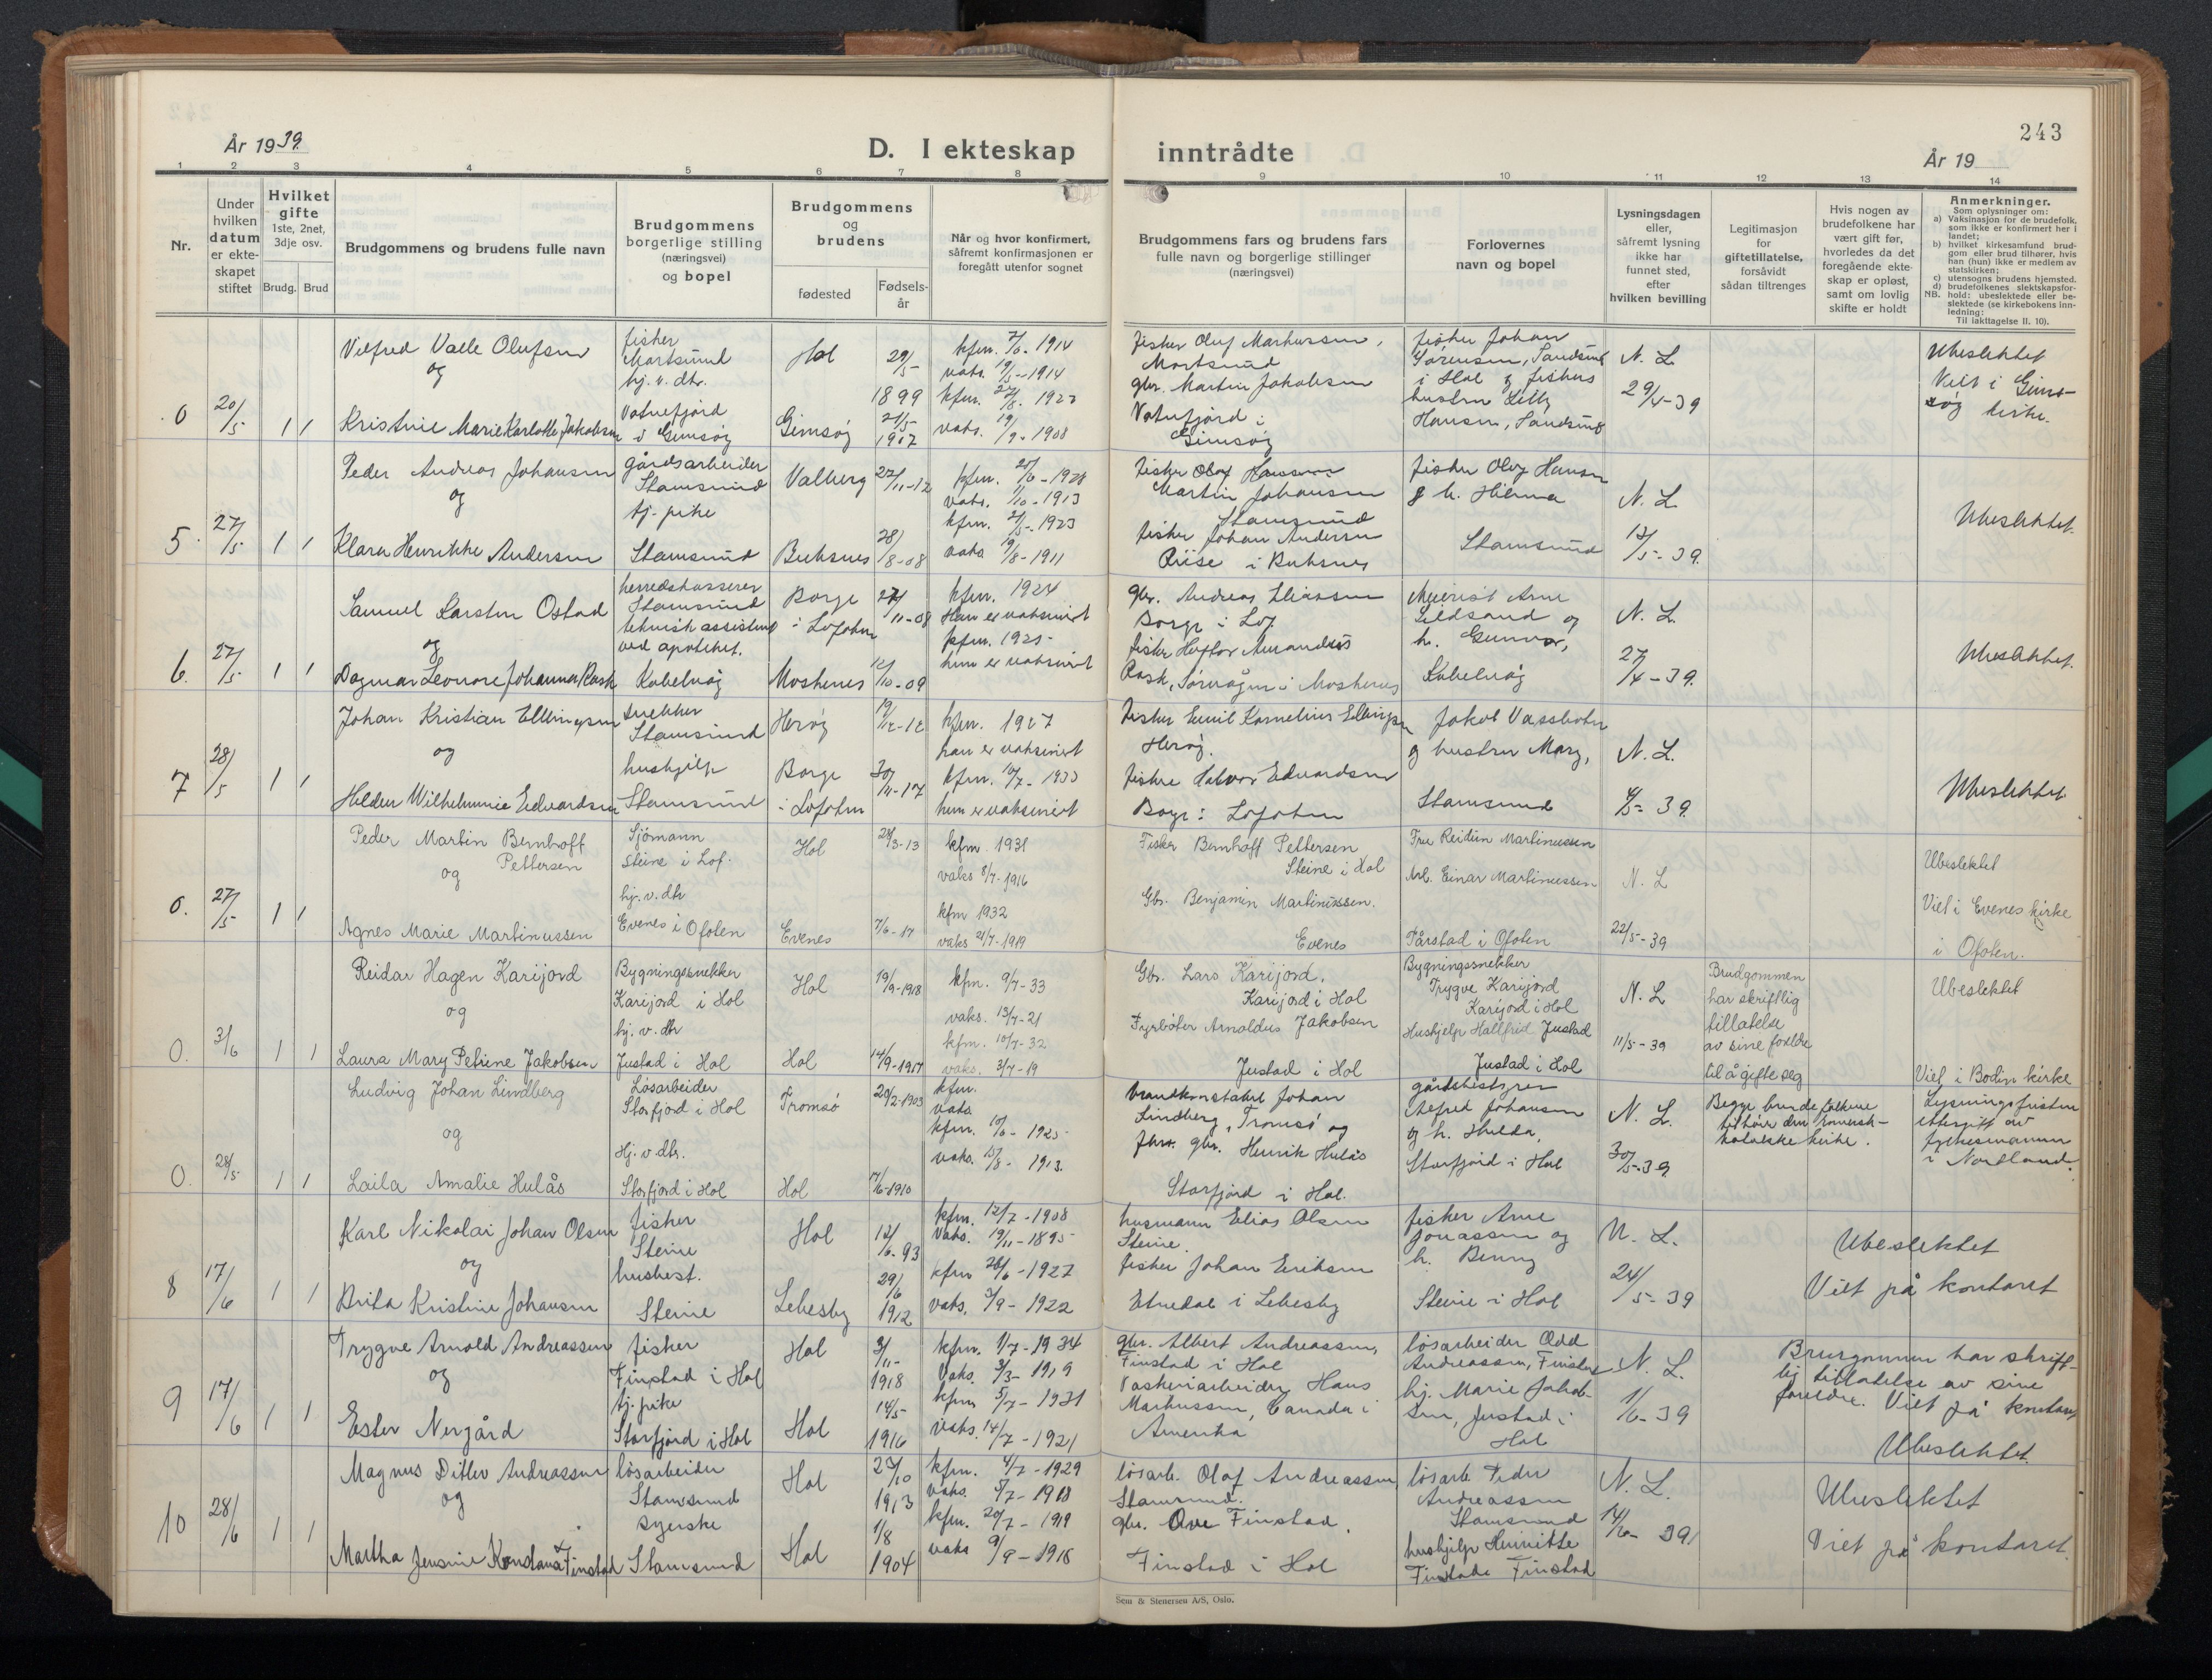 243
År 1939.
D. I ekteskap inntrådte
År 19
1 2 3 4 5 6 7 8 9 10 11 12 13 14
Nr.
Under hvilken datum er ekteskapet stiftet
Hvilket gifte 1ste, 2net, 3dje osv.
Brudg. Brud
Brudgommens og brudens fulle navn
Brudgommens borgerlige stilling (næringsvei) og bopel
Brudgommens og brudens
fødested
Fødselsår
Når og hvor konfirmert, såfremt konfirmasjonen er foregått utenfor sognet
Brudgommens fars og brudens fars fulle navn og borgerlige stillinger (næringsvei)
Forlovernes navn og bopel
Lysningsdagen eller, såfremt lysning ikke har funnet sted, efter hvilken bevilling
Legitimasjon for giftetillatelse, forsåvidt sådan tiltrenges
Hvis nogen av brudefolkene har vært gift før, hvorledes da det foregående ekteskap er opløst, samt om lovlig skifte er holdt
Anmerkninger.
Som oplysninger om:
a) Vaksinasjon for de brudefolk, som ikke er konfirmert her i landet;
b) hvilket kirkesamfund brudgom eller brud tilhører, hvis han (hun) ikke er medlem av statskirken;
c) utensogns brudens hjemsted.
d) brudefolkenes slektskapsforhold: ubeslektede eller beslektede (se kirkebokens innledning:
NB.
Til iakttagelse II. 10).
0 20/5 1 1
Vilfred Valle Olufsen
og
Kristine Marie Karlotte Jakobsen
fisher
Mortsund
hj. v. dtr.
Vatnefjord
i Gimsøy
Hol 29/5-1899
Gimsøy 21/5 1907
kfm. 1914
vaks. 19/5-1914
kfm. 1923
vaks. 19/9-1908
Fisker Oluf Markussen,
Mortsund
gbr. Martin Jakobsen
Vatnefjord i
Gimsøy
fisker Johan
Sørensen, Sandsund
i Hol og fiskers
hustru Lilly
Hansen, Sandsund
N. L.
29/4-39
Ubeslektet
Viet i Gimsøy kirke.
5. 27/5 1 1
Peder Andreas Johansen
og
Klara Henrikke Andersen
gårdsarbeider
Stamsund
tj. pike
Stamsund
Valberg 27/11-12
Buksnes 28/8-08
kfm. 1928
vaks. 1/10-1913
kfm. 1923
vaks 19/8-1911
Fisker
Martin Johansen
Stamsund
Fisker Johan Andersen
i Buksnes
fisker Olay Hansen
g h. Hilma
Stamsund
N. L.
12/5-39.
Ubeslektet.
6. 27/5 1 1
Samuel Karsten Ostad
og
Dagmar Leonore Johanna Rask
herredskasserer
Stamsund
teknisk assistent
ved apoteket.
Kabelvåg
Borge i Lofoten 11-08
Moskenes 12/10-09
kfm. 1924
Han er vaksinert
kfm. 1925
hun er vaksinert
gbr. Andreas Eliassen
Borge i Lof.
Rask, Sørvågen i Moskenes
Meierist Arne
Lildsand og
h. Gunvor,
Kabelvåg
N. L.
27/4-39.
Ubeslektet.
7 28/5 1 1
Johan Kristian Ellingsen
og
Hilder Wilhelmine Edvardsen
snekker
Stamsund
hushjelp
Stamsund
Herøy 19/12-12
Borge i Lofoten 30/11-17
kfm. 1927
han er vaksinert
kfm. 10/7-1933
hun er vaksinert
Fisker Emil Kornelius Ellingsen
Herøy.
Fisker Halvor Edvardsen
Borge i Lofoten
Jakob Vassbotn
g hustru Mary,
Stamsund
N. L.
4/5-39.
Ubeslektet.
0. 27/5 1 1
Peder Martin Bernhoff
og Pettersen
Agnes Marie Martinussen
Sjömann
Steine i Lof.
hj. v. dtr
Evenes i Ofoten
Hol 28/3-13
Evenes 7/6-17
kfm 1931
vaks 8/7-1916
kfm 1932
vaks 21/7-1919
Fisker Bernhoff Pettersen
Steine i Hol
Gbr. Benjamin Martinussen.
Evenes
Frue Reidun Martinussen
Arb. Einar Martinussen
Tårstad i Ofoten
N. L
22/5-39
Ubeslektet
Viet i Evenes kirke
i Ofoten.
0. 3/6 1 1
Reidar Hagen Karijord
og
Laura Mary Petrine Jakobsen
Bygningssnekker
Karijord i Hol
hj. v. dtr
Justad i Hol
Hol 19/9-1918
Hol 14/9-1917
kfm. 9/7-33
vaks. 13/7-21
kfm. 10/7-32
vaks. 3/7-19
Gbr. Lars Karijord.
Karijord i Hol
Fyrbøter Arnoldus Jakobsen
Justad i Hol
Bygningssnekker
Trygve Karijord
Karijord i Hol
Hushjelp Hallfrid Justad
Justad i Hol
N. L
11/5-39
Brudgommen
har skriftlig
tillatelse
av sine foreldre
til å gifte seg
Ubeslektet
Viet i Bodin kirke
0. 28/5 1 1
Ludvig Johan Lindberg
og
Laila Amalie Hulås
Løsarbeider
Storfjord i Hol
Hj. v. dtr.
Storfjord i Hol
Tromsø 20/2-1903
Hol 17/6-1910
kfm.
vaks
kfm. 10/6-1925
vaks. 15/8-1913.
Brandkonstabel Johan
Lindberg, Tromsø og
gbr. Henrik Hulås
Storfjord i Hol.
gårdsbestyrer
Alfred Johansen
og h. Hulda,
Storfjord i Hol
N. L.
30/5-39.
Begge brudefolkene
tilhører den romersk-
katolske kirke.
Lysningsfristen
ettergitt av
fylkesmannen
i Nordland.
8 17/6 1 1
Karl Nikolai Johan Olsen
og
Brita Kristine Johansen
fisker
Steine
husbest.
Steine
Hol 12/6-93
Lebesby 29/6 1912
kfm. 12/7-1908
Vaks. 19/11-1895
kfm 28/6-1927
vaks. 3/9-1922
husmann Elias Olsen
Steine.
fisker Johan Eriksen
i Lebesby
fisker Arne
Jonassen og
h. Benny
Steine i Hol
N. L.
24/5-39
Ubeslektet
Viet på kontoret
9 17/6 1 1
Trygve Arnold Andreassen
og
Ester Nergård
fisker
Finstad i Hol
tj. pike
Storfjord i Hol
Hol 3/11-1918
Hol 14/5-1916
kfm. 1/7-1934
Vaks. 3/3-1919
kfm 5/7-1931
vaks. 14/7-1921
gbr. Albert Andreassen,
Finstad i Hol
Vaskeriarbeider Hans
Markussen, Canada i
Amerika
løsarbeider Odd
Andreassen, Finstad
hj. Marie Jakobsen, Justad i
Hol
N. L.
1/6-39
Brurgommen har skriftlig tillatelse av sine
foreldre. Viet på kontoret
Ubeslektet.
10 28/6 1 1
Magnus Ditlev Andreassen
og
Martha Jensine Konstansa Finstad
løsarbeider
Stamsund
syerske
Stamsund
Hol 23/10 1913
Hol 1/8 1904
kfm. 4/7-1929
vaks. 5/7-1918
kfm. 20/7-1919
vaks 9/9-1916
løsarb. Olaf Andreassen
Stamsund.
gbr. Ove Finstad.
Finstad i Hol
løsarb. Peder
Andreassen
Stamsund
hushjelp Henriette
Finstad
N. L.
14/6-39
Ubeslektet
Viet på kontoret.
Sem & Stenersen A/S, Oslo.